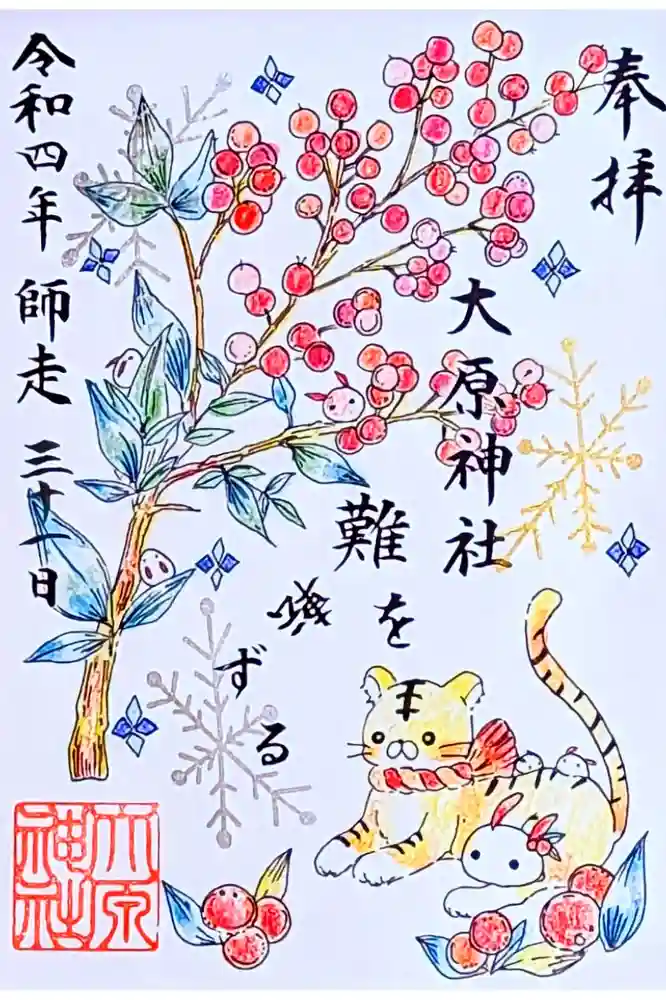 奉拝
大原神社
難を
ずる
令和四年 師走 三十一日
大原
神社